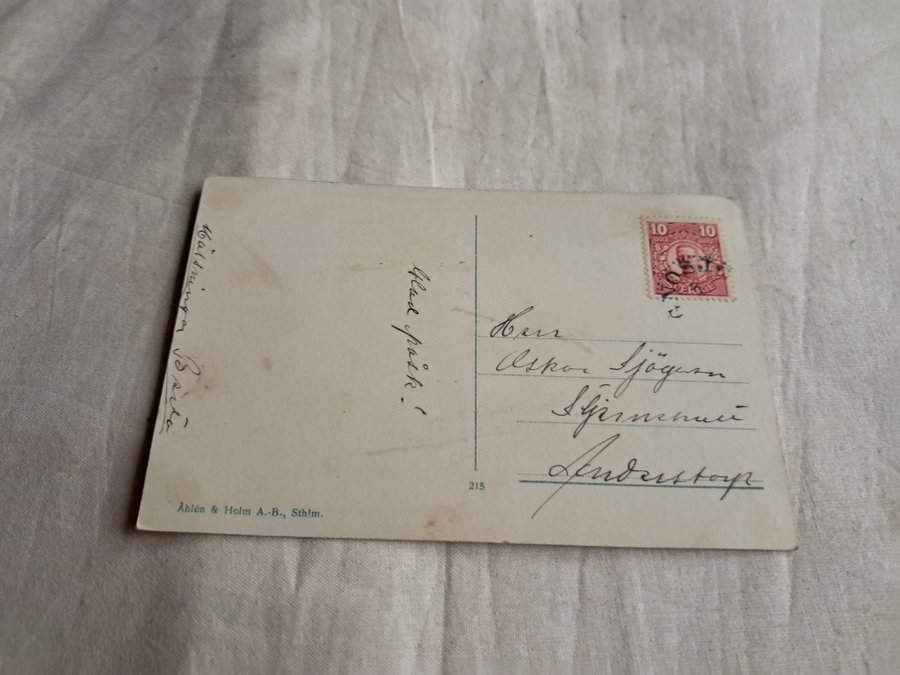 Hälsningar Berta
Glad påsk!
10 10
SVERIGE
Herr
Oskar Sjögren
Anderstorp
215
Åhlén & Holm A.-B., Sthlm.